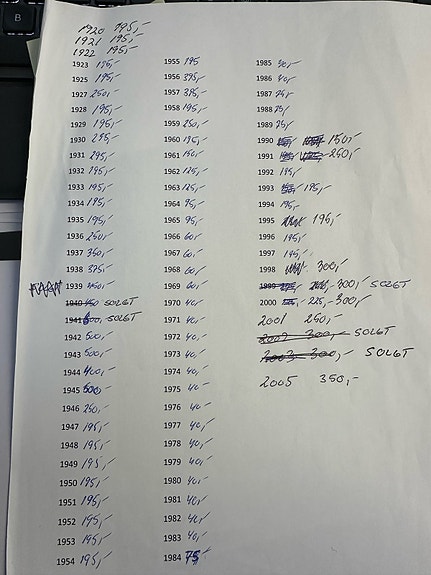 B
1920 195,-
1921 195,-
1922 195,-
1923 195,-
1925 195,-
1927 250,-
1928 195,-
1929 195,-
1930 295,-
1931 295,-
1932 195,-
1933 195,-
1934 195,-
1935 195,-
1936 250,-
1937 350,-
1938 375,-
1939 450,-
1940 SOLGT
1941 SOLGT
1942 500,-
1943 500,-
1944 400,-
1945 500,-
1946 250,-
1947 195,-
1948 195,-
1949 195,-
1950 195,-
1951 195,-
1952 195,-
1953 195,-
1954 195,-
1955 195
1956 395,-
1957 395,-
1958 195,-
1959 250,-
1960 195,-
1961 150,-
1962 125,-
1963 125,-
1964 95,-
1965 95,-
1966 60,-
1967 60,-
1968 60,-
1969 60,-
1970 40,-
1971 40,-
1972 40,-
1973 40,-
1974 40,-
1975 40,-
1976 40,-
1977 40,-
1978 40,-
1979 40,-
1980 40,-
1981 40,-
1982 40,-
1983 40,-
1984 75,-
1985 40,-
1986 40,-
1987 75,-
1988 75,-
1989 75,-
1990 150,-
1991 250,-
1992 195,-
1993 195,-
1994 195,-
1995 195,-
1996 195,-
1997 195,-
1998 300,-
1999 300,- SOLGT
2000 225,- 300,-
2001 250,-
2002 300,- SOLGT
2003 300,- SOLGT
2005 350,-